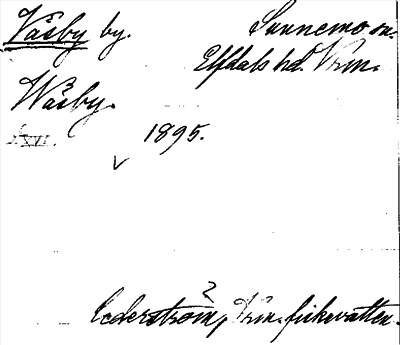 Väsby by. Sunnemo sn.
Elfdals hd. Vrm.
Wåsby.
XVI. 1895.
Cederström, Vrm. fiskevatten.